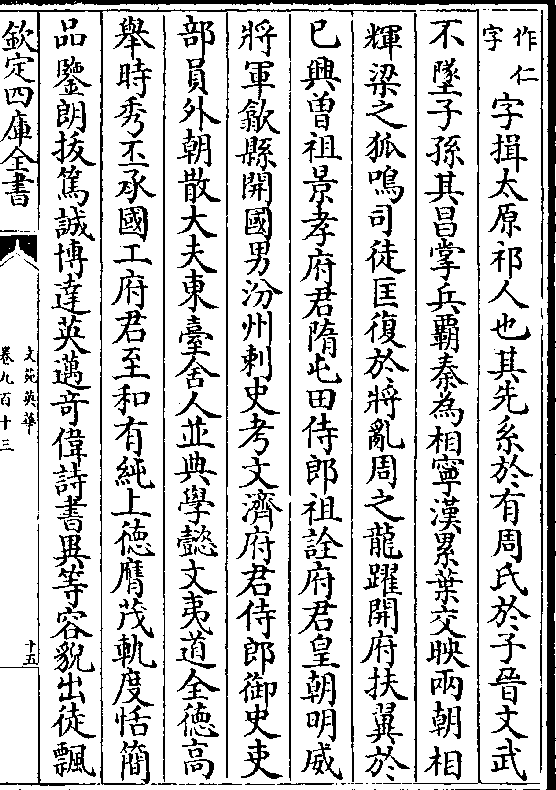 作仁
字
字揖太原祁人也其先系於有周氏於子晉文武
不墜子孫其昌掌兵覇秦為相寧漢累葉交映兩朝相
輝梁之狐鳴司徒匡復於將亂周之龍躍開府扶翼於
已興曽祖景孝府君隋屯田侍郎祖詮府君皇朝明威
將軍歙縣開國男汾州刺史考文濟府君侍郎御史吏
部員外朝散大夫東臺舍人並典學懿文夷道全徳高
舉時秀丕承國工府君至和有純上徳膺茂軌度恬簡
品鑒朗抜篤誠博達英邁竒偉詩書異等容貌出徒飄
欽定四庫全書
文苑英華
卷九百十三
十五